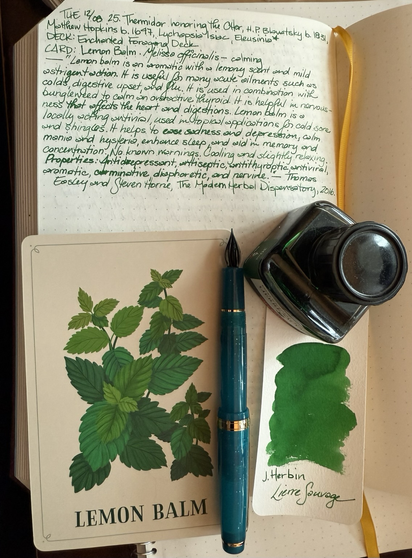 TUE 12/08 25. Thermidor honoring the Otter, H.P. Blavatsky b. 1831,
Matthew Hopkins b. 1647, Lychapsia Isiac, Eleusinia
DECK: Enchanted Foraging Deck
CARD: Lemon Balm - Melissa officinalis - calming
"Lemon balm is an aromatic with a lemony scent and mild
astringent action. It is useful for many acute ailments such as
colds, digestive upset, and flu. It is used in combination with
bungleweed to calm an overactive thyroid. It is helpful in nervous-
ness that affects the heart and digestions. Lemon balm is a
locally acting antiviral, used in topical applications for cold sores
and shingles. It helps to ease sadness and depression, calm
mania and hysteria, enhance sleep, and aid in memory and
concentration. No known warnings. Cooling and slightly relaxing.
Properties: Antidepressant, antiseptic, antithyroptic, antiviral,
aromatic, carminative, diaphoretic, and nervine. - Thomas
Easley and Steven Horne, The Modern Herbal Dispensatory, 2016.
LEMON BALM
J. Herbin
Lierre Sauvage